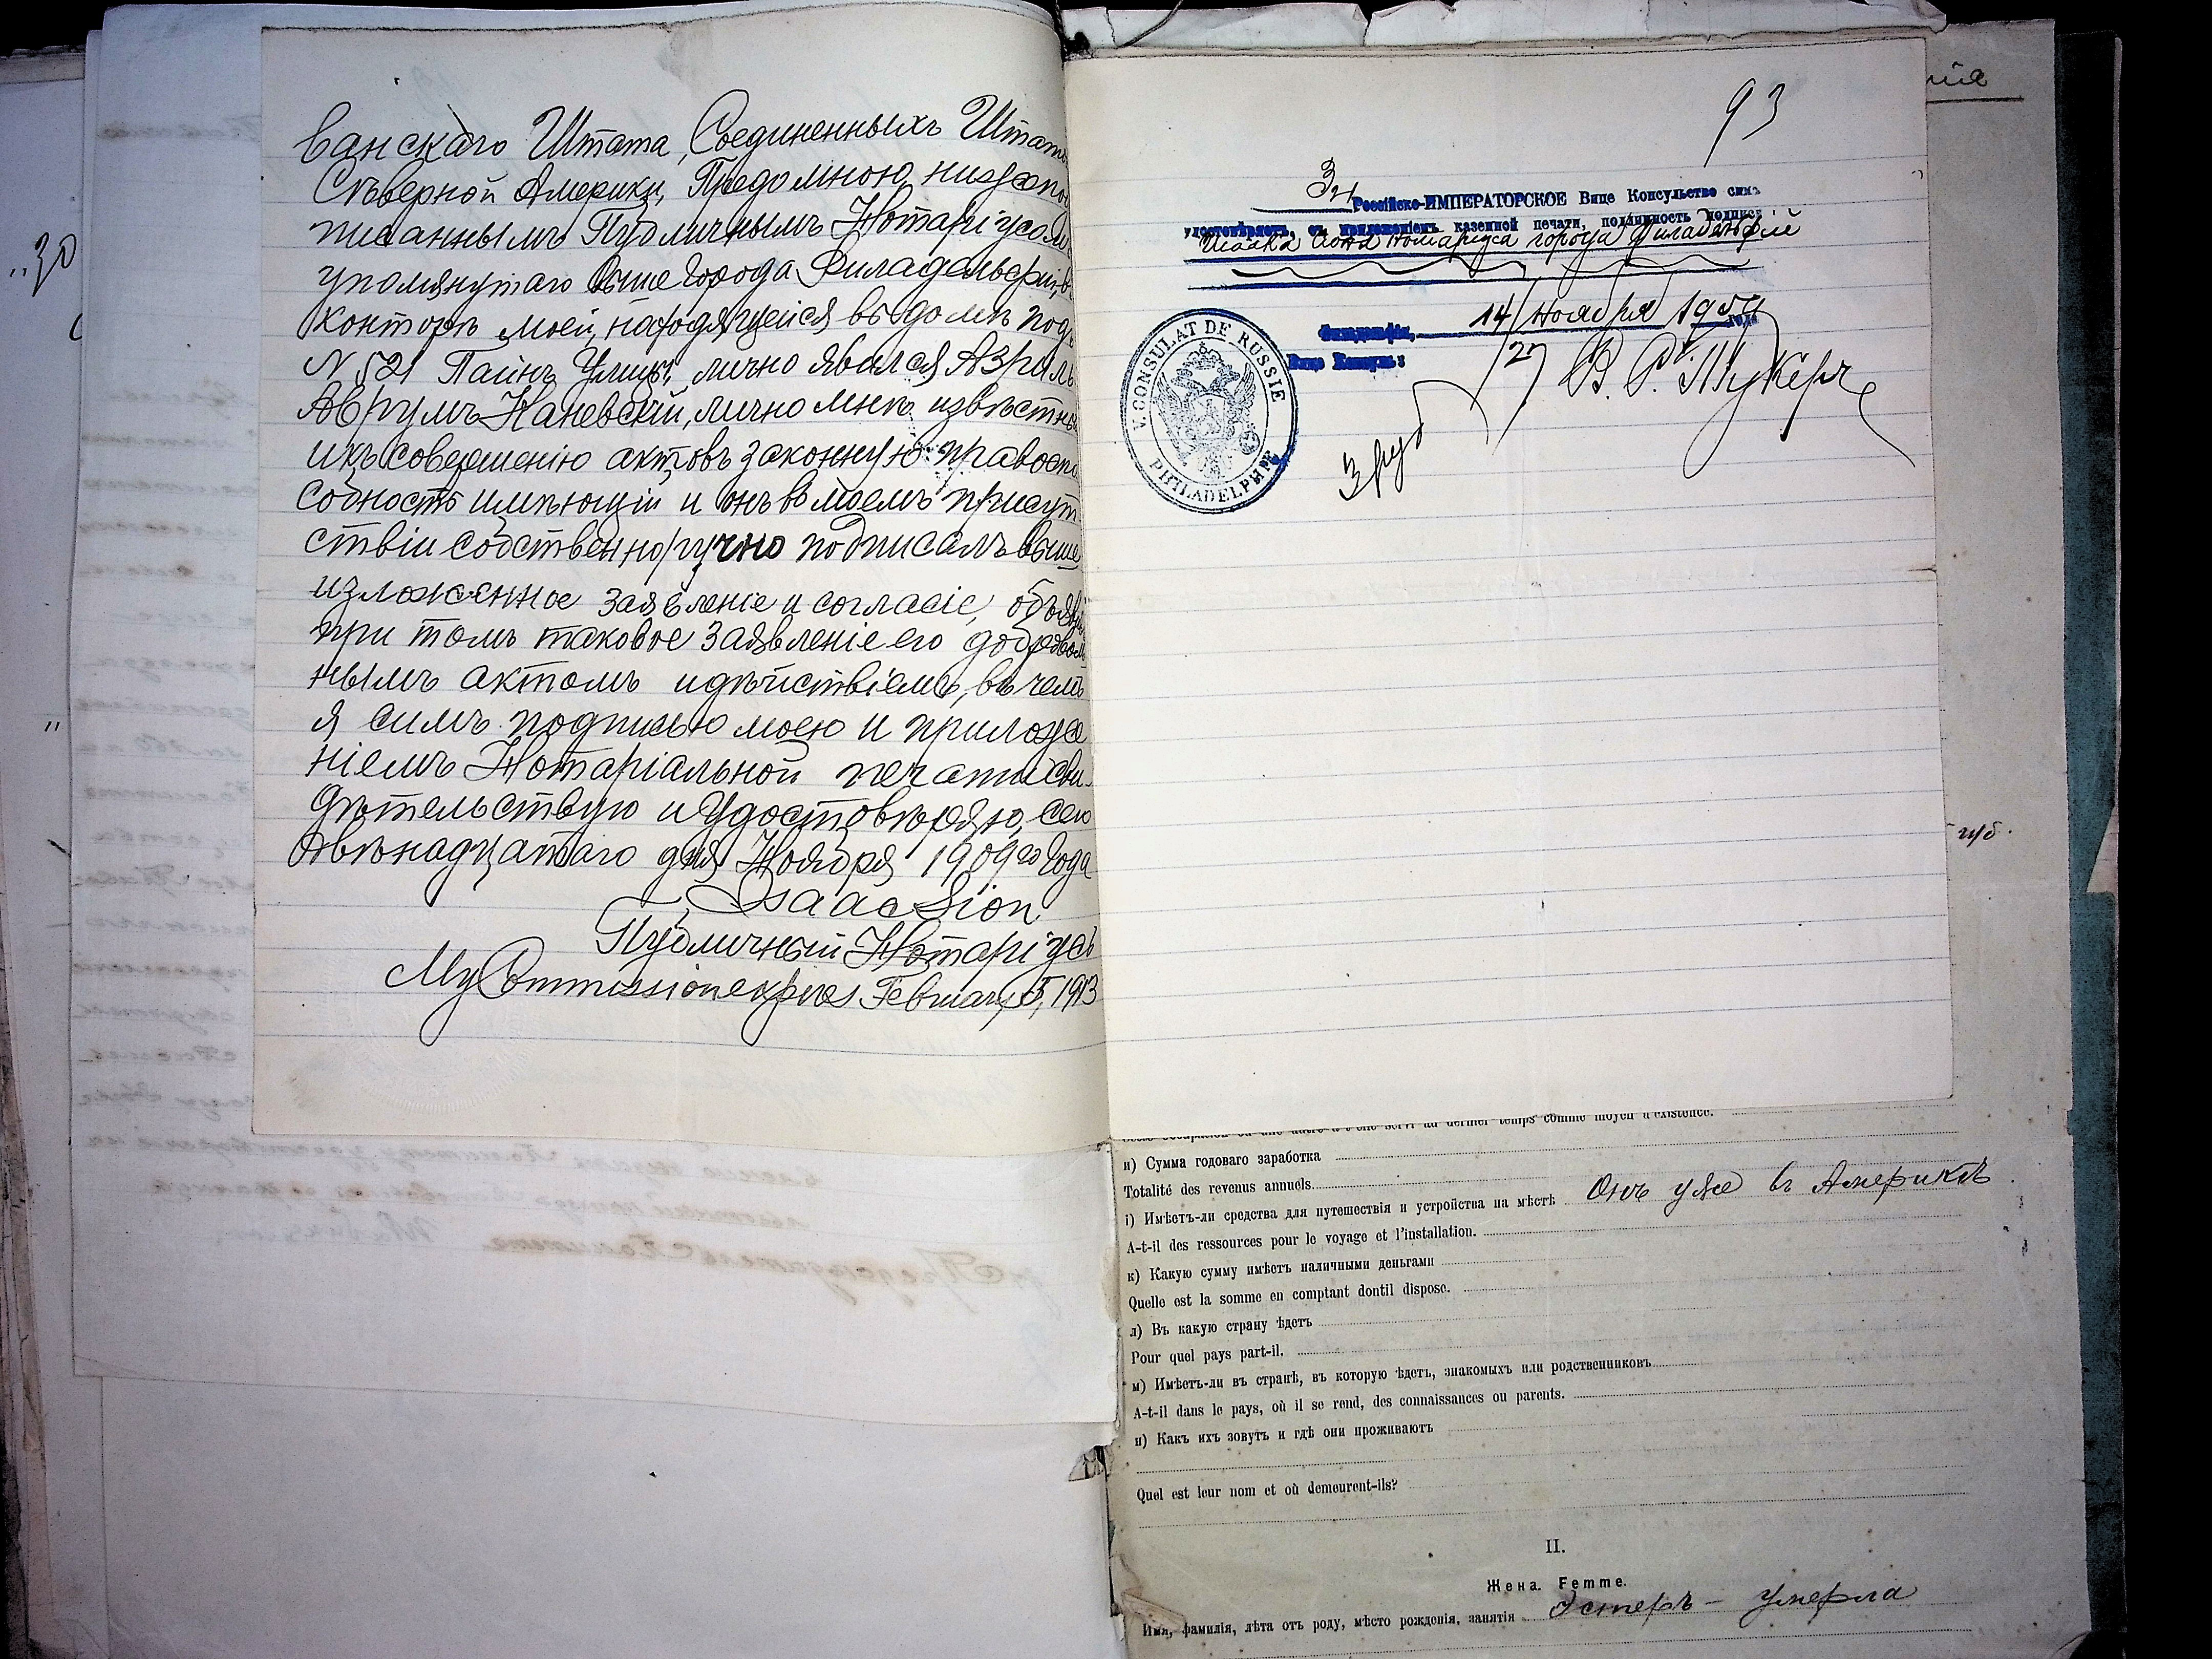 ванскаго Штата, Соединенныхъ Штато
Сѣверной Америки, Предомною, нижепо
писаннымъ Публичнымъ Нотаріусом
упомянутаго выше Города Филадельфіи, в
конторѣ моей, находящейся въ домѣ подъ
N 521 Пайнъ Улицы, лично явился Азриль
Аврумъ Каневскій, лично мнѣ извѣстны
и къ совершенію актовъ законную правоспо
собность имѣющій и онъ въ моемъ присут
ствіи собственноручно подписалъ выше
изложенное заявленіе и согласіе, объяв
при томъ таковое заявленіе его доброволь
нымъ актомъ и дѣйствіемъ, въ чемъ
я симъ подписью моею и приложе
ніемъ Нотаріальной печати сви-
дѣтельствую и удостовѣряю, сего
Двѣнадцатаго дня Ноября 1909го Года
Isaac Sion
Публичный Нотаріусъ
My Commission expires February 5, 1913
93
Россійско-ИМПЕРАТОРСКОЕ Вице Консульство симъ
удостовѣряетъ, съ приложеніемъ казенной печати, подлинность подписи
Исаака Сіона Нотаріуса города Филадельфіи
Филадельфія, 14/27 Ноября 1909 года
Вице Консулъ:
В. Р. Тукеръ
3 руб
V. CONSULAT DE RUSSIE
PHILADELPHIE
"30
губ.
и) Сумма годоваго заработка
Totalité des revenus annuels.
і) Имѣетъ-ли средства для путешествія и устройства на мѣстѣ Онъ уже въ Америкѣ
A-t-il des ressources pour le voyage et l'installation.
к) Какую сумму имѣетъ наличными деньгами
Quelle est la somme en comptant dontil dispose.
л) Въ какую страну ѣдетъ
Pour quel pays part-il.
м) Имѣетъ-ли въ странѣ, въ которую ѣдетъ, знакомыхъ или родственниковъ
A-t-il dans le pays, où il se rend, des connaissances ou parents.
н) Какъ ихъ зовутъ и гдѣ они проживаютъ
Quel est leur nom et où demeurent-ils?
II.
Жена. Femme.
Имя, фамилія, лѣта отъ роду, мѣсто рожденія, занятія Эстеръ - умерла